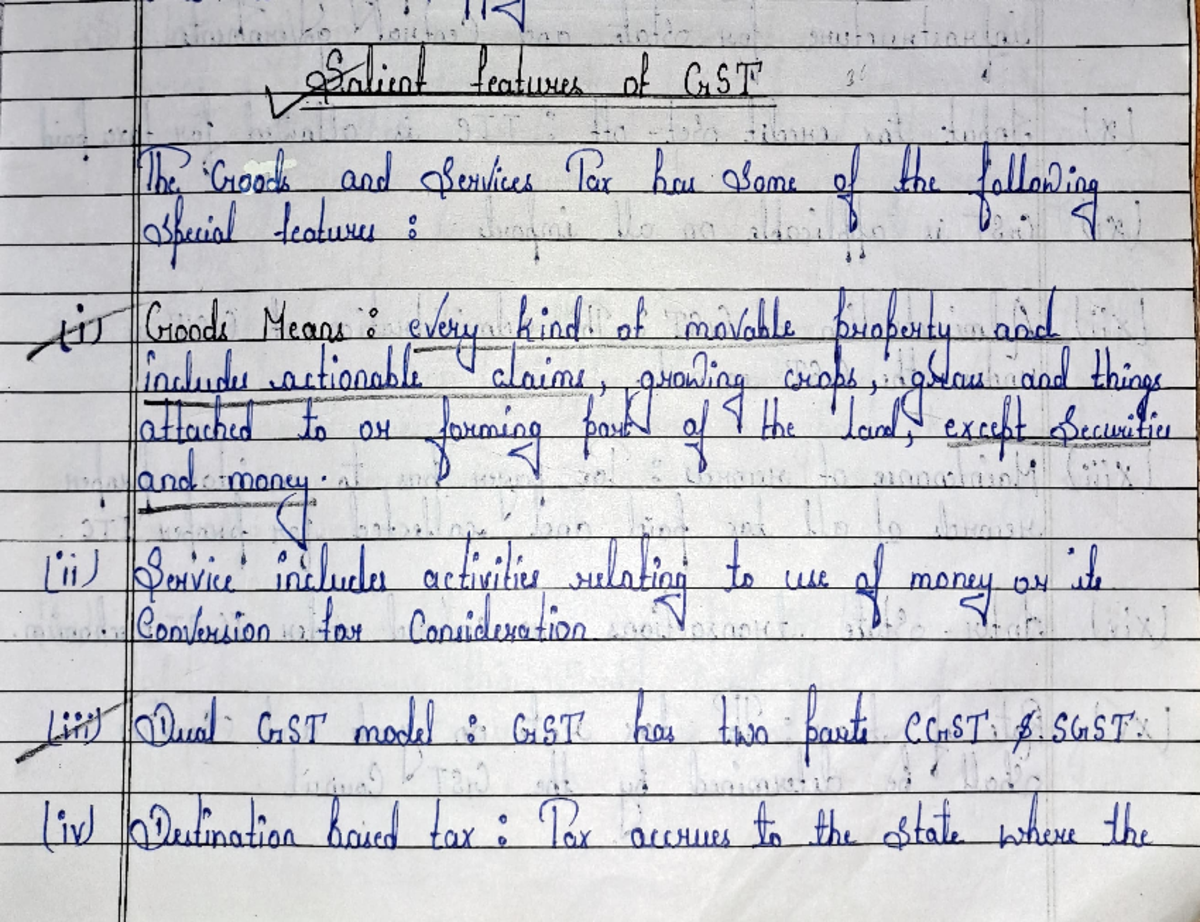 Salient features of GST
The Goods and Services Tax has some of the following
special features :
(i) Goods Means : every kind of movable property and
includes actionable claims, growing crops, grass and things
attached to or forming part of the land, except Securities
and money.
(ii) Service includes activities relating to use of money or its
Conversion for Consideration
(iii) Dual GST model : GST has two parts CGST & SGST.
(iv) Destination based tax : Tax accrues to the State where the